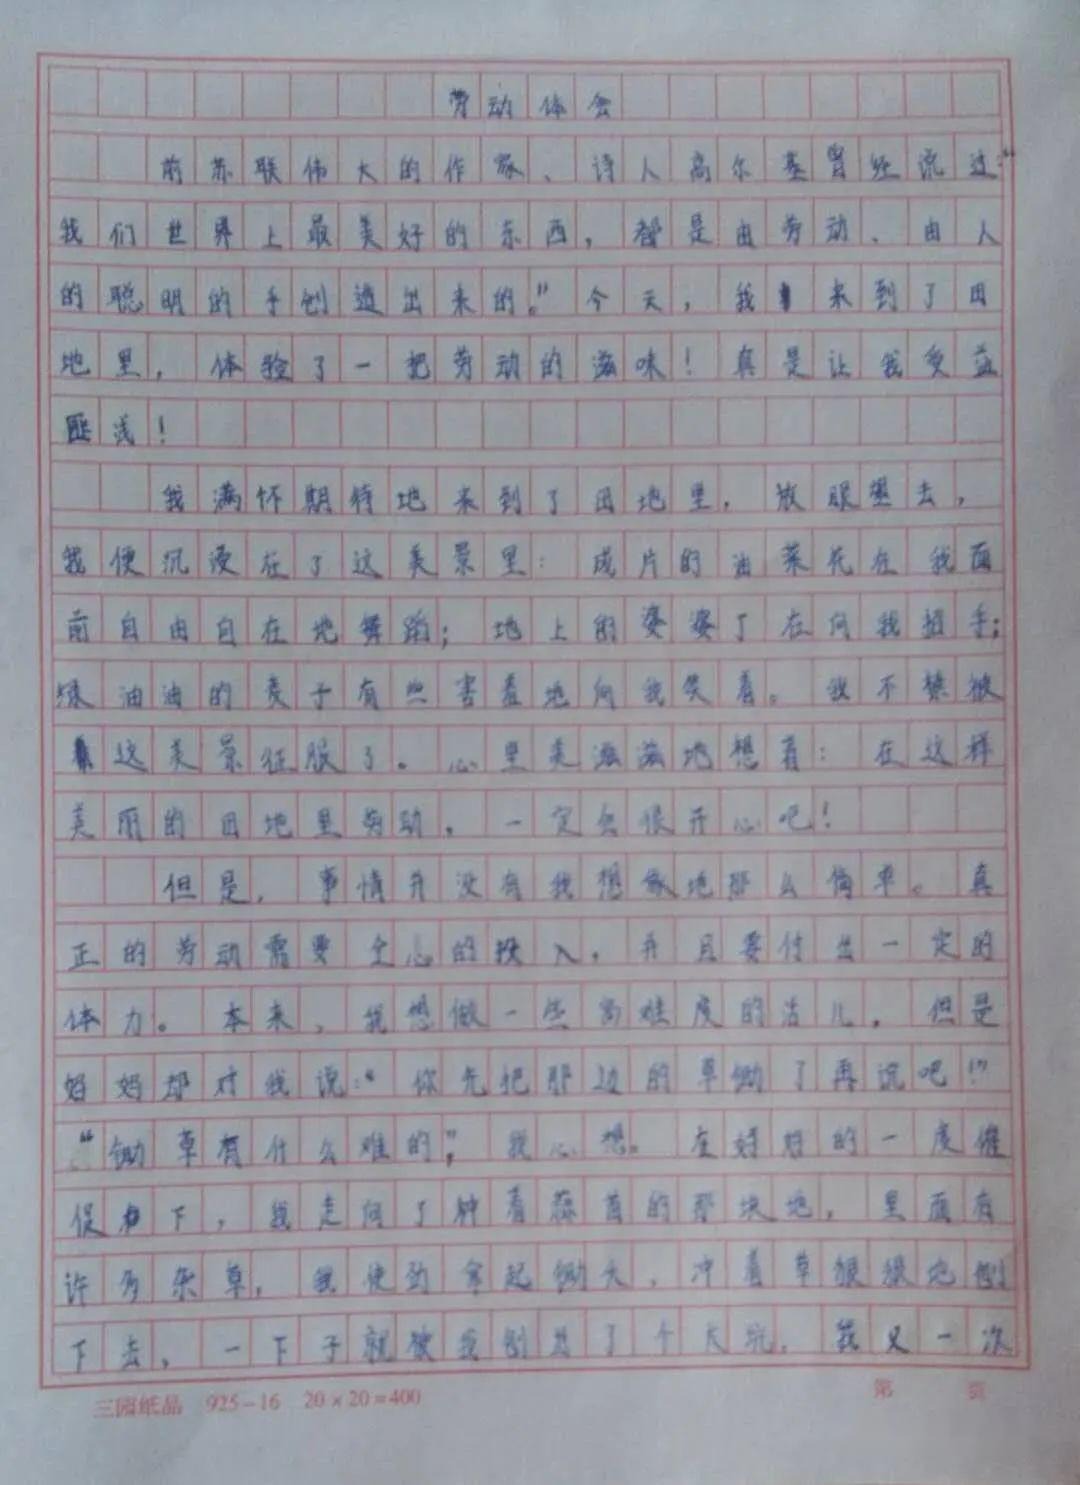 劳动体会
前苏联伟大的作家、诗人高尔基曾经说过:“
我们世界上最美好的东西,都是由劳动、由人
的聪明的手创造出来的。”今天,我来到了田
地里,体验了一把劳动的滋味!真是让我受益
匪浅!
我满怀期待地来到了田地里,放眼望去,
我便沉浸在了这美景里:成片的油菜花在我面
前自由自在地舞蹈;地上的婆婆丁在向我招手;
绿油油的麦子有些害羞地向我笑着。我不禁被
这美景征服了。心里美滋滋地想着:在这样
美丽的田地里劳动,一定会很开心吧!
但是,事情并没有我想像地那么简单。真
正的劳动需要全心的投入,并且要付出一定的
体力。本来,我想做一些高难度的活儿,但是
妈妈却对我说:“你先把那边的草锄了再说吧!”
“锄草有什么难的”,我心想。在妈妈的一度催
促下,我走向了种着蒜苗的那块地,里面有
许多杂草,我使劲拿起锄头,冲着草狠狠地刨
下去,一下子就被我刨出了个大坑。我又一次
三园纸品 925-16 20×20=400
第 页